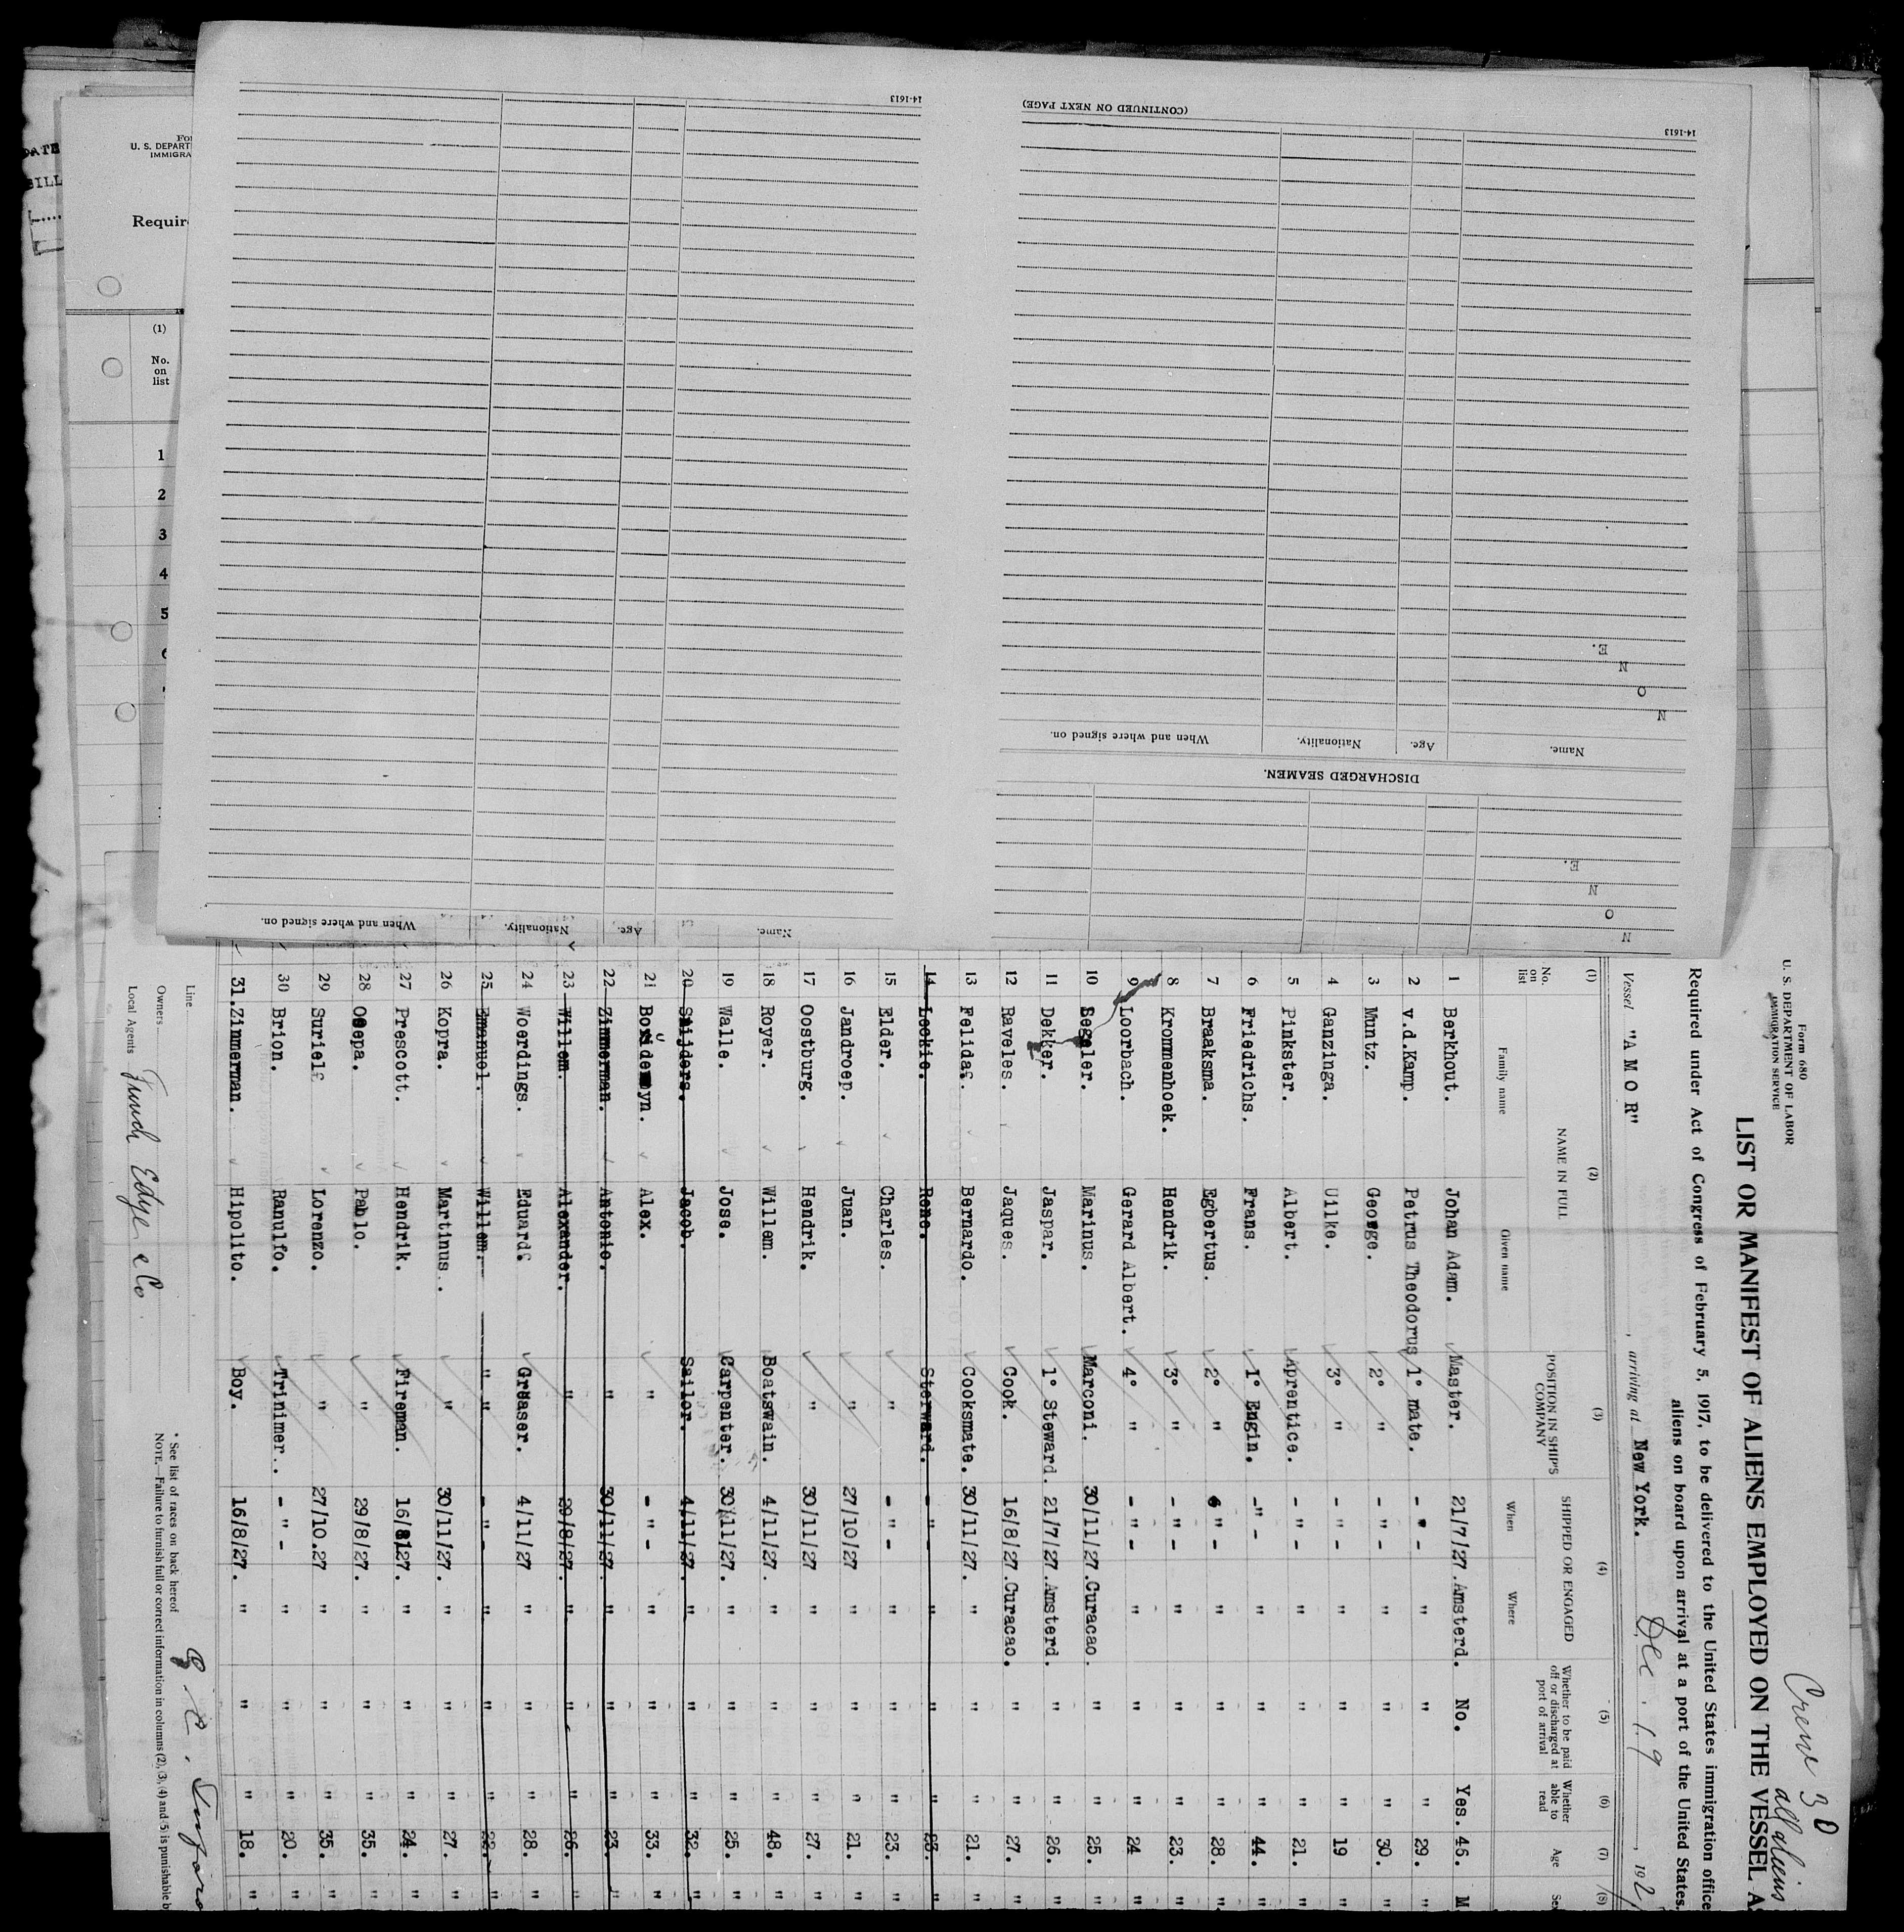 Form 680
U. S. DEPARTMENT OF LABOR
IMMIGRATION SERVICE
Crew 30
all aliens
LIST OR MANIFEST OF ALIENS EMPLOYED ON THE VESSEL A
Required under Act of Congress of February 5, 1917, to be delivered to the United States immigration office
aliens on board upon arrival at a port of the United States.
Vessel "A M O R" , arriving at New York. Dec. 19 , 192
(1) (2) (3) (4) (5) (6) (7) (8)
No. on list NAME IN FULL POSITION IN SHIP'S COMPANY SHIPPED OR ENGAGED Whether to be paid off or discharged at port of arrival Whether able to read Age Se
Family name Given name When Where
1 Berkhout. Johan Adam. Master. 21/7/27. Amsterd. No. Yes. 46. M
2 v.d.Kamp. Petrus Theodorus 1° mate. - " - " " " 29. "
3 Muntz. George. 2° " - " - " " " 30. "
4 Ganzinga. Uilke. 3° " - " - " " " 19 "
5 Pinkster. Albert. Aprentice. - " - " " " 21. "
6 Friedrichs. Frans. 1° Engin. - " - " " " 44. "
7 Braaksma. Egbertus. 2° " " - " " " 28. "
8 Krommenhoek. Hendrik. 3° " - " - " " " 23. "
9 Loorbach. Gerard Albert. 4° " - " - " " " 24 "
10 Segaler. Marinus. Marconi. 30/11/27. Curacao. " " 25. "
11 Dekker. Jaspar. 1° Steward. 21/7/27. Amsterd. " " 26. "
12 Raveles. Jaques. Cook. 16/8/27. Curacao. " " 27. "
13 Felida. Bernardo. Cooksmate. 30/11/27. " " " 21. "
14 Leckie. Rene. Sterward. - " - " " " 23. "
15 Elder. Charles. " - " - " " " 23. "
16 Jandroep. Juan. " 27/10/27 " " " 21. "
17 Oostburg. Hendrik. " 30/11/27 " " " 27. "
18 Royer. Willem. Boatswain. 4/11/27. " " " 48. "
19 Walle. Jose. Carpenter. 30/11/27. " " " 25. "
20 Snijders. Jacob. Sailor. 4/11/27. " " " 32. "
21 Alex. " - " - " " " 33. "
22 Zimmerman. Antonio. " 30/11/27. " " " 23. "
23 Willem. Alexander. " 29/8/27. " " " 26. "
24 Woerdings. Eduard. Greaser. 4/11/27 " " " 28. "
25 Emanuel. Willem. " - " - " " " 22. "
26 Kopra. Martinus. " 30/11/27. " " " 27. "
27 Prescott. Hendrik. Fireman. 16/8/27. " " " 24. "
28 Osepa. Pablo. " 29/8/27. " " " 35. "
29 Suriel Lorenzo. " 27/10.27 " " " 35. "
30 Brion. Ranulfo. Trinimer. - " - " " " 20. "
31. Zimmerman. Hipolito. Boy. 16/8/27. " " " 18. "
Line
Owners
Local Agents Funch Edye & Co
* See list of races on back hereof
NOTE.—Failure to furnish full or correct information in columns (2), (3), (4) and (5) is punishable b
14-1613
(CONTINUED ON NEXT PAGE)
14-1613
N
O
N
E.
DISCHARGED SEAMEN.
Name. Age. Nationality. When and where signed on.
N
O
N
E.
Name. Age. Nationality. When and where signed on.
U. S. DEPART
IMMIGRA
Requir
(1)
No.
on
list
1
2
3
4
5